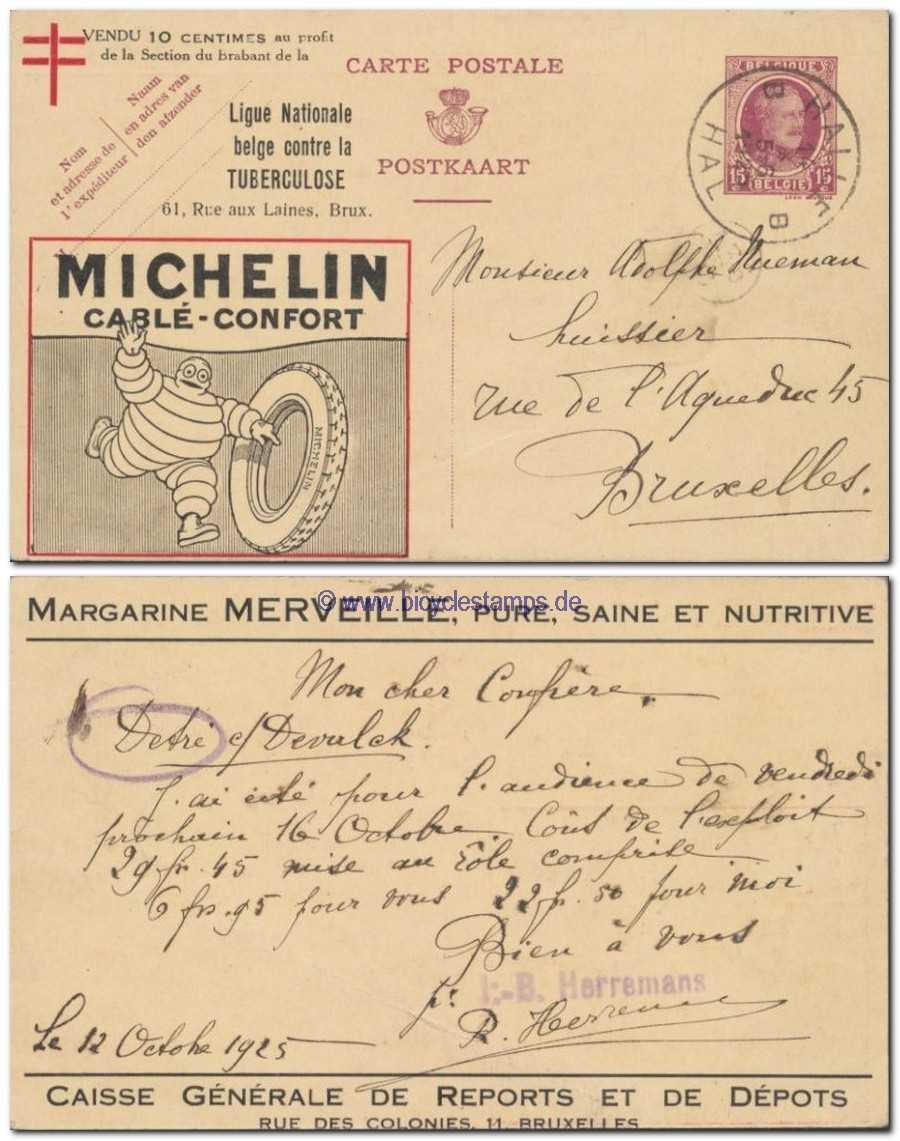 VENDU 10 CENTIMES au profit
de la Section du Brabant de la
Nom
et adresse de
l'expéditeur
Naam
en adres van
den afzender
Ligue Nationale
belge contre la
TUBERCULOSE
61, Rue aux Laines, Brux.
CARTE POSTALE
POSTKAART
BELGIQUE
15 c 15 c
BELGIË
HALLE
B B
HAL
MICHELIN
CABLÉ-CONFORT
MICHELIN
Monsieur Adolphe Nueman
huissier
rue de l'Aqueduc 45
Bruxelles.
© www.bicyclestamps.de
MARGARINE MERVEILLE, PURE, SAINE ET NUTRITIVE
Mon cher Confrère.
Detri c/ Devulck.
J'ai cité pour l'audience de vendredi
prochain 16 Octobre. Coût de l'exploit
29 fr. 45 mise au rôle comprise
6 frs. 95 pour vous 22 fr. 50 pour moi
Bien à vous
pr J.-B. Herremans
R. Herremans
Le 12 Octobre 1925
CAISSE GÉNÉRALE DE REPORTS ET DE DÉPOTS
RUE DES COLONIES, 11, BRUXELLES